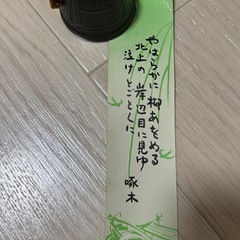 やはらかに 柳あをめる
北上の 岸辺目に見ゆ
泣けとごとくに
啄木